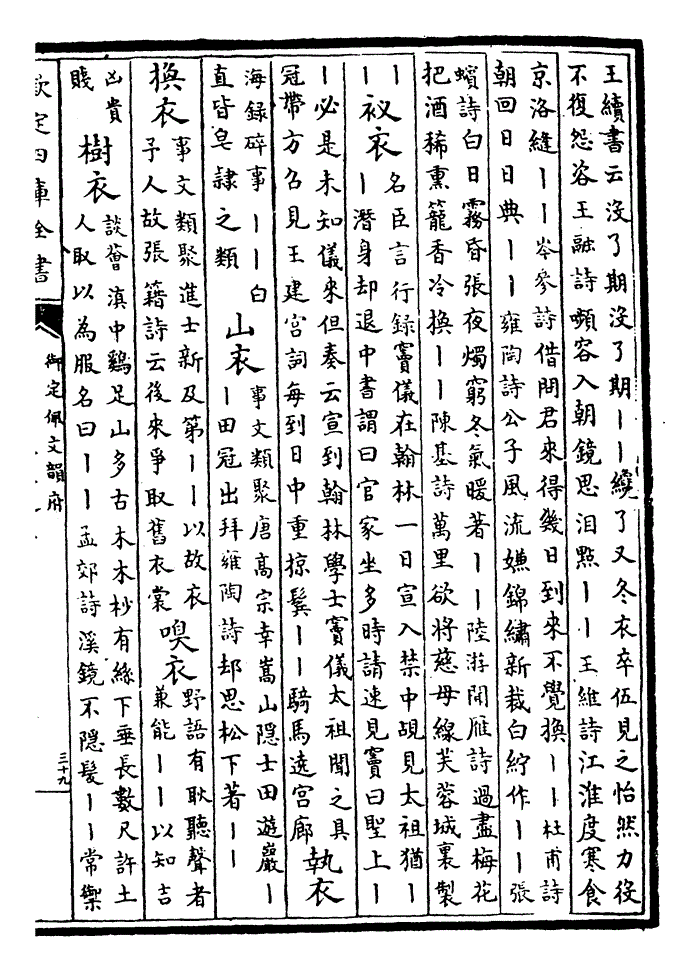 王續書云沒了期沒了期｜｜繞了又冬衣卒伍見之怡然力役
不復怨咨王融詩嚬容入朝鏡思泪點｜｜王維詩江淮度寒食
京洛縫｜｜岑參詩借問君來得幾日到來不覺換｜｜杜甫詩
朝回日日典｜｜雍陶詩公子風流嫌錦繡新裁白紵作｜｜張
蠙詩白日霧昏張夜燭窮冬氣暖著｜｜陸游聞雁詩過盡梅花
把酒稀熏籠香冷換｜｜陳基詩萬里欲將慈母線芙蓉城裏製
｜｜
衩衣
名臣言行録竇儀在翰林一日宣入禁中覘見太祖猶｜
｜潛身却退中書謂曰官家坐多時請速見竇曰聖上｜
｜必是未知儀來但奏云宣到翰林學士竇儀太祖聞之具
冠帶方召見王建宮詞每到日中重掠鬢｜｜騎馬遶宮廊
執衣
海録碎事｜｜白
直皆皂隷之類
山衣
事文類聚唐高宗幸嵩山隱士田遊巖｜
｜田冠出拜雍陶詩却思松下著｜｜
換衣
事文類聚進士新及第｜｜以故衣
子人故張籍詩云後來爭取舊衣裳
嗅衣
野語有耿聽聲者
兼能｜｜以知吉
凶貴
賤
樹衣
談薈滇中鷄足山多古木木杪有絲下垂長數尺許土
人取以為服名曰｜｜孟郊詩溪鏡不隱髮｜｜常禦
欽定四庫全書
御定佩文韻府
三十九